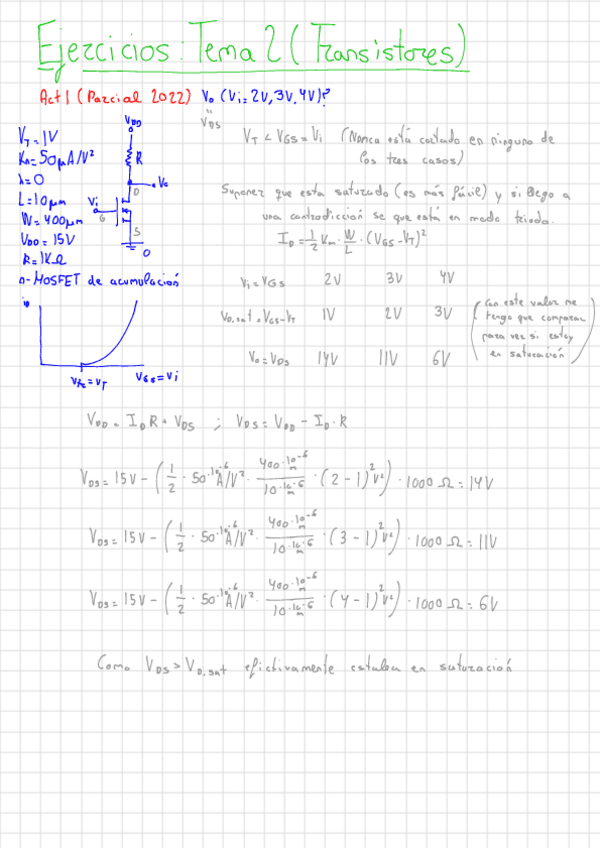 Ejercicios: Tema 2 (Transistores)
Act 1 (Parcial 2022) Vo (Vi=2V, 3V, 4V)?
"
VDS
VT = 1V
Kn = 50 μA/V²
λ = 0
L = 10 μm
W = 400 μm
VDD = 15V
R = 1KΩ
n-MOSFET de acumulación
VDD
R
Vo
D
Vi
G
S
0
iD
VGS = Vi
VT < VGS = Vi (Nunca está cortado en ninguno de
los tres casos)
Suponer que esta saturado (es más fácil) y si llego a
una contradicción se que está en modo triodo.
ID = 1/2 Kn · W/L · (VGS - VT)²
Vi = VGS 2V 3V 4V
VD,sat = VGS - VT 1V 2V 3V
(con este valor me
tengo que comparar
para ver si estoy
en saturación)
Vo = VDS 14V 11V 6V
VDD = ID R + VDS ; VDS = VDD - ID · R
VDS = 15V - (1/2 · 50·10⁻⁶ A/V² · 400·10⁻⁶ m / 10·10⁻⁶ m · (2-1)² V²) · 1000 Ω = 14V
VDS = 15V - (1/2 · 50·10⁻⁶ A/V² · 400·10⁻⁶ m / 10·10⁻⁶ m · (3-1)² V²) · 1000 Ω = 11V
VDS = 15V - (1/2 · 50·10⁻⁶ A/V² · 400·10⁻⁶ m / 10·10⁻⁶ m · (4-1)² V²) · 1000 Ω = 6V
Como VDS > VD,sat efictivamente estaba en saturación